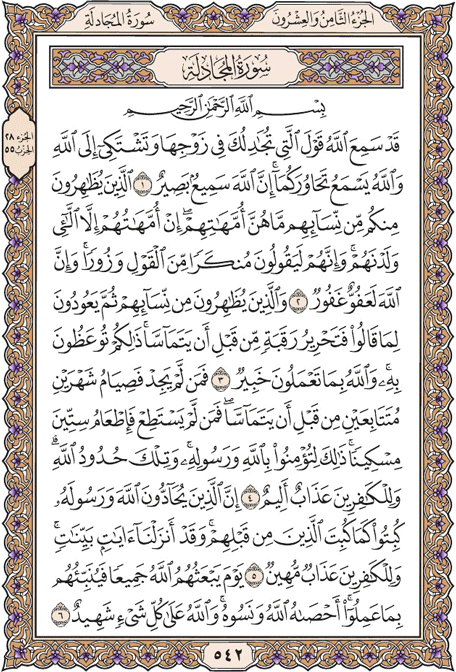 الجزء الثامن والعشرون
سورة المجادلة
سُورَةُ المُجَادلَةِ
الجزء ٢٨
الحزب ٥٥
بِسْمِ اللَّهِ الرَّحْمَٰنِ الرَّحِيمِ
قَدْ سَمِعَ ٱللَّهُ قَوْلَ ٱلَّتِي تُجَٰدِلُكَ فِي زَوْجِهَا وَتَشْتَكِيٓ إِلَى ٱللَّهِ
وَٱللَّهُ يَسْمَعُ تَحَاوُرَكُمَآۚ إِنَّ ٱللَّهَ سَمِيعُۢ بَصِيرٌ ١ ٱلَّذِينَ يُظَٰهِرُونَ
مِنكُم مِّن نِّسَآئِهِم مَّا هُنَّ أُمَّهَٰتِهِمۡۖ إِنۡ أُمَّهَٰتُهُمۡ إِلَّا ٱلَّٰٓـِٔي
وَلَدۡنَهُمۡۚ وَإِنَّهُمۡ لَيَقُولُونَ مُنكَرٗا مِّنَ ٱلۡقَوۡلِ وَزُورٗاۚ وَإِنَّ
ٱللَّهَ لَعَفُوٌّ غَفُورٞ ٢ وَٱلَّذِينَ يُظَٰهِرُونَ مِن نِّسَآئِهِمۡ ثُمَّ يَعُودُونَ
لِمَا قَالُواْ فَتَحۡرِيرُ رَقَبَةٖ مِّن قَبۡلِ أَن يَتَمَآسَّاۚ ذَٰلِكُمۡ تُوعَظُونَ
بِهِۦۚ وَٱللَّهُ بِمَا تَعۡمَلُونَ خَبِيرٞ ٣ فَمَن لَّمۡ يَجِدۡ فَصِيَامُ شَهۡرَيۡنِ
مُتَتَابِعَيۡنِ مِن قَبۡلِ أَن يَتَمَآسَّاۖ فَمَن لَّمۡ يَسۡتَطِعۡ فَإِطۡعَامُ سِتِّينَ
مِسۡكِينٗاۚ ذَٰلِكَ لِتُؤۡمِنُواْ بِٱللَّهِ وَرَسُولِهِۦۚ وَتِلۡكَ حُدُودُ ٱللَّهِۗ
وَلِلۡكَٰفِرِينَ عَذَابٌ أَلِيمٌ ٤ إِنَّ ٱلَّذِينَ يُحَآدُّونَ ٱللَّهَ وَرَسُولَهُۥ
كُبِتُواْ كَمَا كُبِتَ ٱلَّذِينَ مِن قَبۡلِهِمۡۚ وَقَدۡ أَنزَلۡنَآ ءَايَٰتِۭ بَيِّنَٰتٖۚ
وَلِلۡكَٰفِرِينَ عَذَابٞ مُّهِينٞ ٥ يَوۡمَ يَبۡعَثُهُمُ ٱللَّهُ جَمِيعٗا فَيُنَبِّئُهُم
بِمَا عَمِلُوٓاْۚ أَحۡصَىٰهُ ٱللَّهُ وَنَسُوهُۚ وَٱللَّهُ عَلَىٰ كُلِّ شَيۡءٖ شَهِيدٌ ٦
٥٤٢